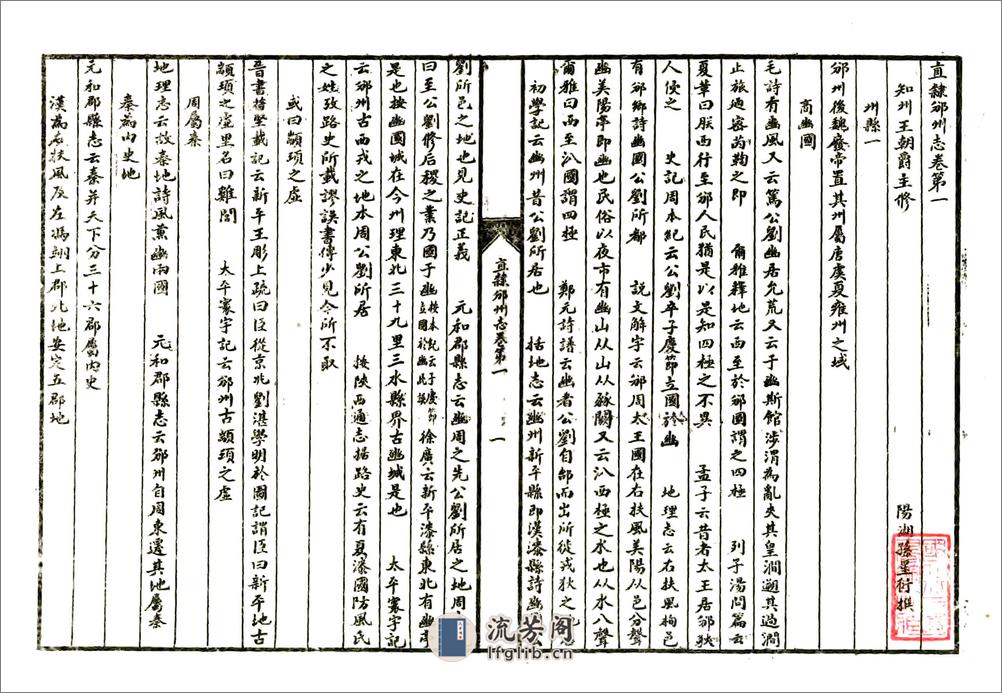 直隸邠州志卷第一
知州王朝爵主修 陽湖孫星衍撰
州縣一
邠州後魏廢帝置其州屬唐虞夏雍州之域
商幽國
毛詩有幽風又云篤公劉幽居允荒又云于幽斯館涉渭為亂夾其皇澗遡其過澗
止旅迺密芮鞫之即 爾雅釋地云西至於邠國謂之四極 列子湯問篇云
夏革曰朕西行至邠人民猶是以是知四極之不異 孟子云昔者太王居邠狄
人侵之 史記周本紀云公劉卒子慶節立國於幽 地理志云右扶風栒邑
有邠鄉詩幽國公劉所都 說文解字云邠周太王國在右扶風美陽从邑分聲
幽美陽亭即幽也民俗以夜市有幽山从山从豩闕又云汃西極之水也从水八聲
爾雅曰西至汃國謂四極 鄭元詩譜云幽者公劉自邰而出所徙戎狄之
初學記云幽州昔公劉所居也 括地志云幽州新平縣即漢漆縣詩幽國公
直隸邠州志卷第一 一
劉所邑之地也見史記正義 元和郡縣志云幽周之先公劉所居之地周
曰至公劉修后稷之業乃國于幽 徐廣云新平漆縣東北有幽亭
是也按幽國城在今州理東北三十九里三水縣界古幽城是也 太平寰宇記
云邠州古西戎之地本周公劉所居 按陝西通志据路史云有夏漆國防風氏
之姓攷路史所載謬誤書傳少見今所不取
或曰顓頊之虛
晉書苻堅載記云新平王彫上疏曰臣從京兆劉湛學明於圖記謂臣曰新平地古
顓頊之虛里名曰雞閭 太平寰宇記云邠州古顓頊之虛
周屬秦
地理志云故秦地詩風兼幽兩國 元和郡縣志云邠州自周東遷其地屬秦
秦為內史地
元和郡縣志云秦并天下分三十六郡屬內史
漢為右扶風及左馮翊上郡北地安定五郡地
流芳閣
lfglib.cn